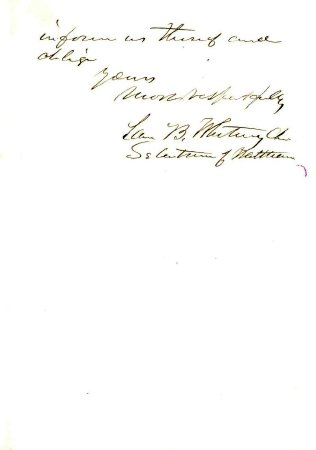 inform us thereof and
oblige
Yours
Most respectfully
B. Whitney
Selectmen of Waltham